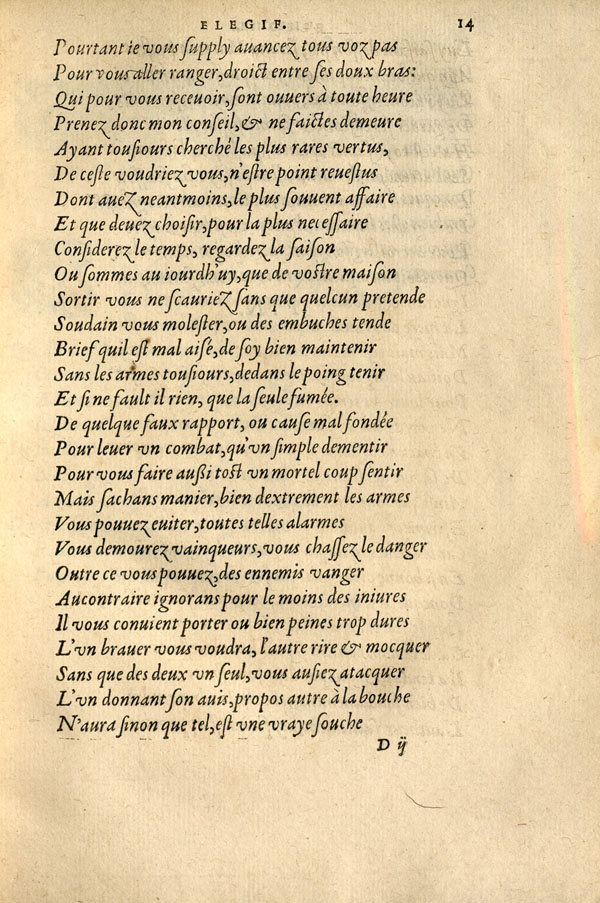 ELEGIE. 14
Pourtant ie vous ſupply auancez tous voz pas
Pour vous aller ranger, droict entre ſes doux bras:
Qui pour vous receuoir, ſont ouuers à toute heure
Prenez donc mon conſeil, & ne faictes demeure
Ayant touſiours cherché les plus rares vertus,
De ceſte voudriez vous, n'eſtre point reueſtus
Dont auez neantmoins, le plus ſouuent affaire
Et que deuez choiſir, pour la plus neceſſaire
Conſiderez le temps, regardez la ſaiſon
Ou ſommes au iourdh'uy, que de voſtre maiſon
Sortir vous ne ſcauriez ſans que quelcun pretende
Soudain vous moleſter, ou des embuches tende
Brief quil eſt mal aiſe, de ſoy bien maintenir
Sans les armes touſiours, dedans le poing tenir
Et ſi ne fault il rien, que la ſeule fumée.
De quelque faux rapport, ou cauſe mal fondée
Pour leuer vn combat, qu'vn ſimple dementir
Pour vous faire außi toſt vn mortel coup ſentir
Mais ſachans manier, bien dextrement les armes
Vous pouuez euiter, toutes telles alarmes
Vous demourez vainqueurs, vous chaſſez le danger
Outre ce vous pouuez, des ennemis vanger
Aucontraire ignorans pour le moins des iniures
Il vous conuient porter ou bien peines trop dures
L'vn brauer vous voudra, l'autre rire & mocquer
Sans que des deux vn ſeul, vous auſiez atacquer
L'vn donnant ſon auis, propos autre à la bouche
N'aura ſinon que tel, eſt vne vraye ſouche
D ij